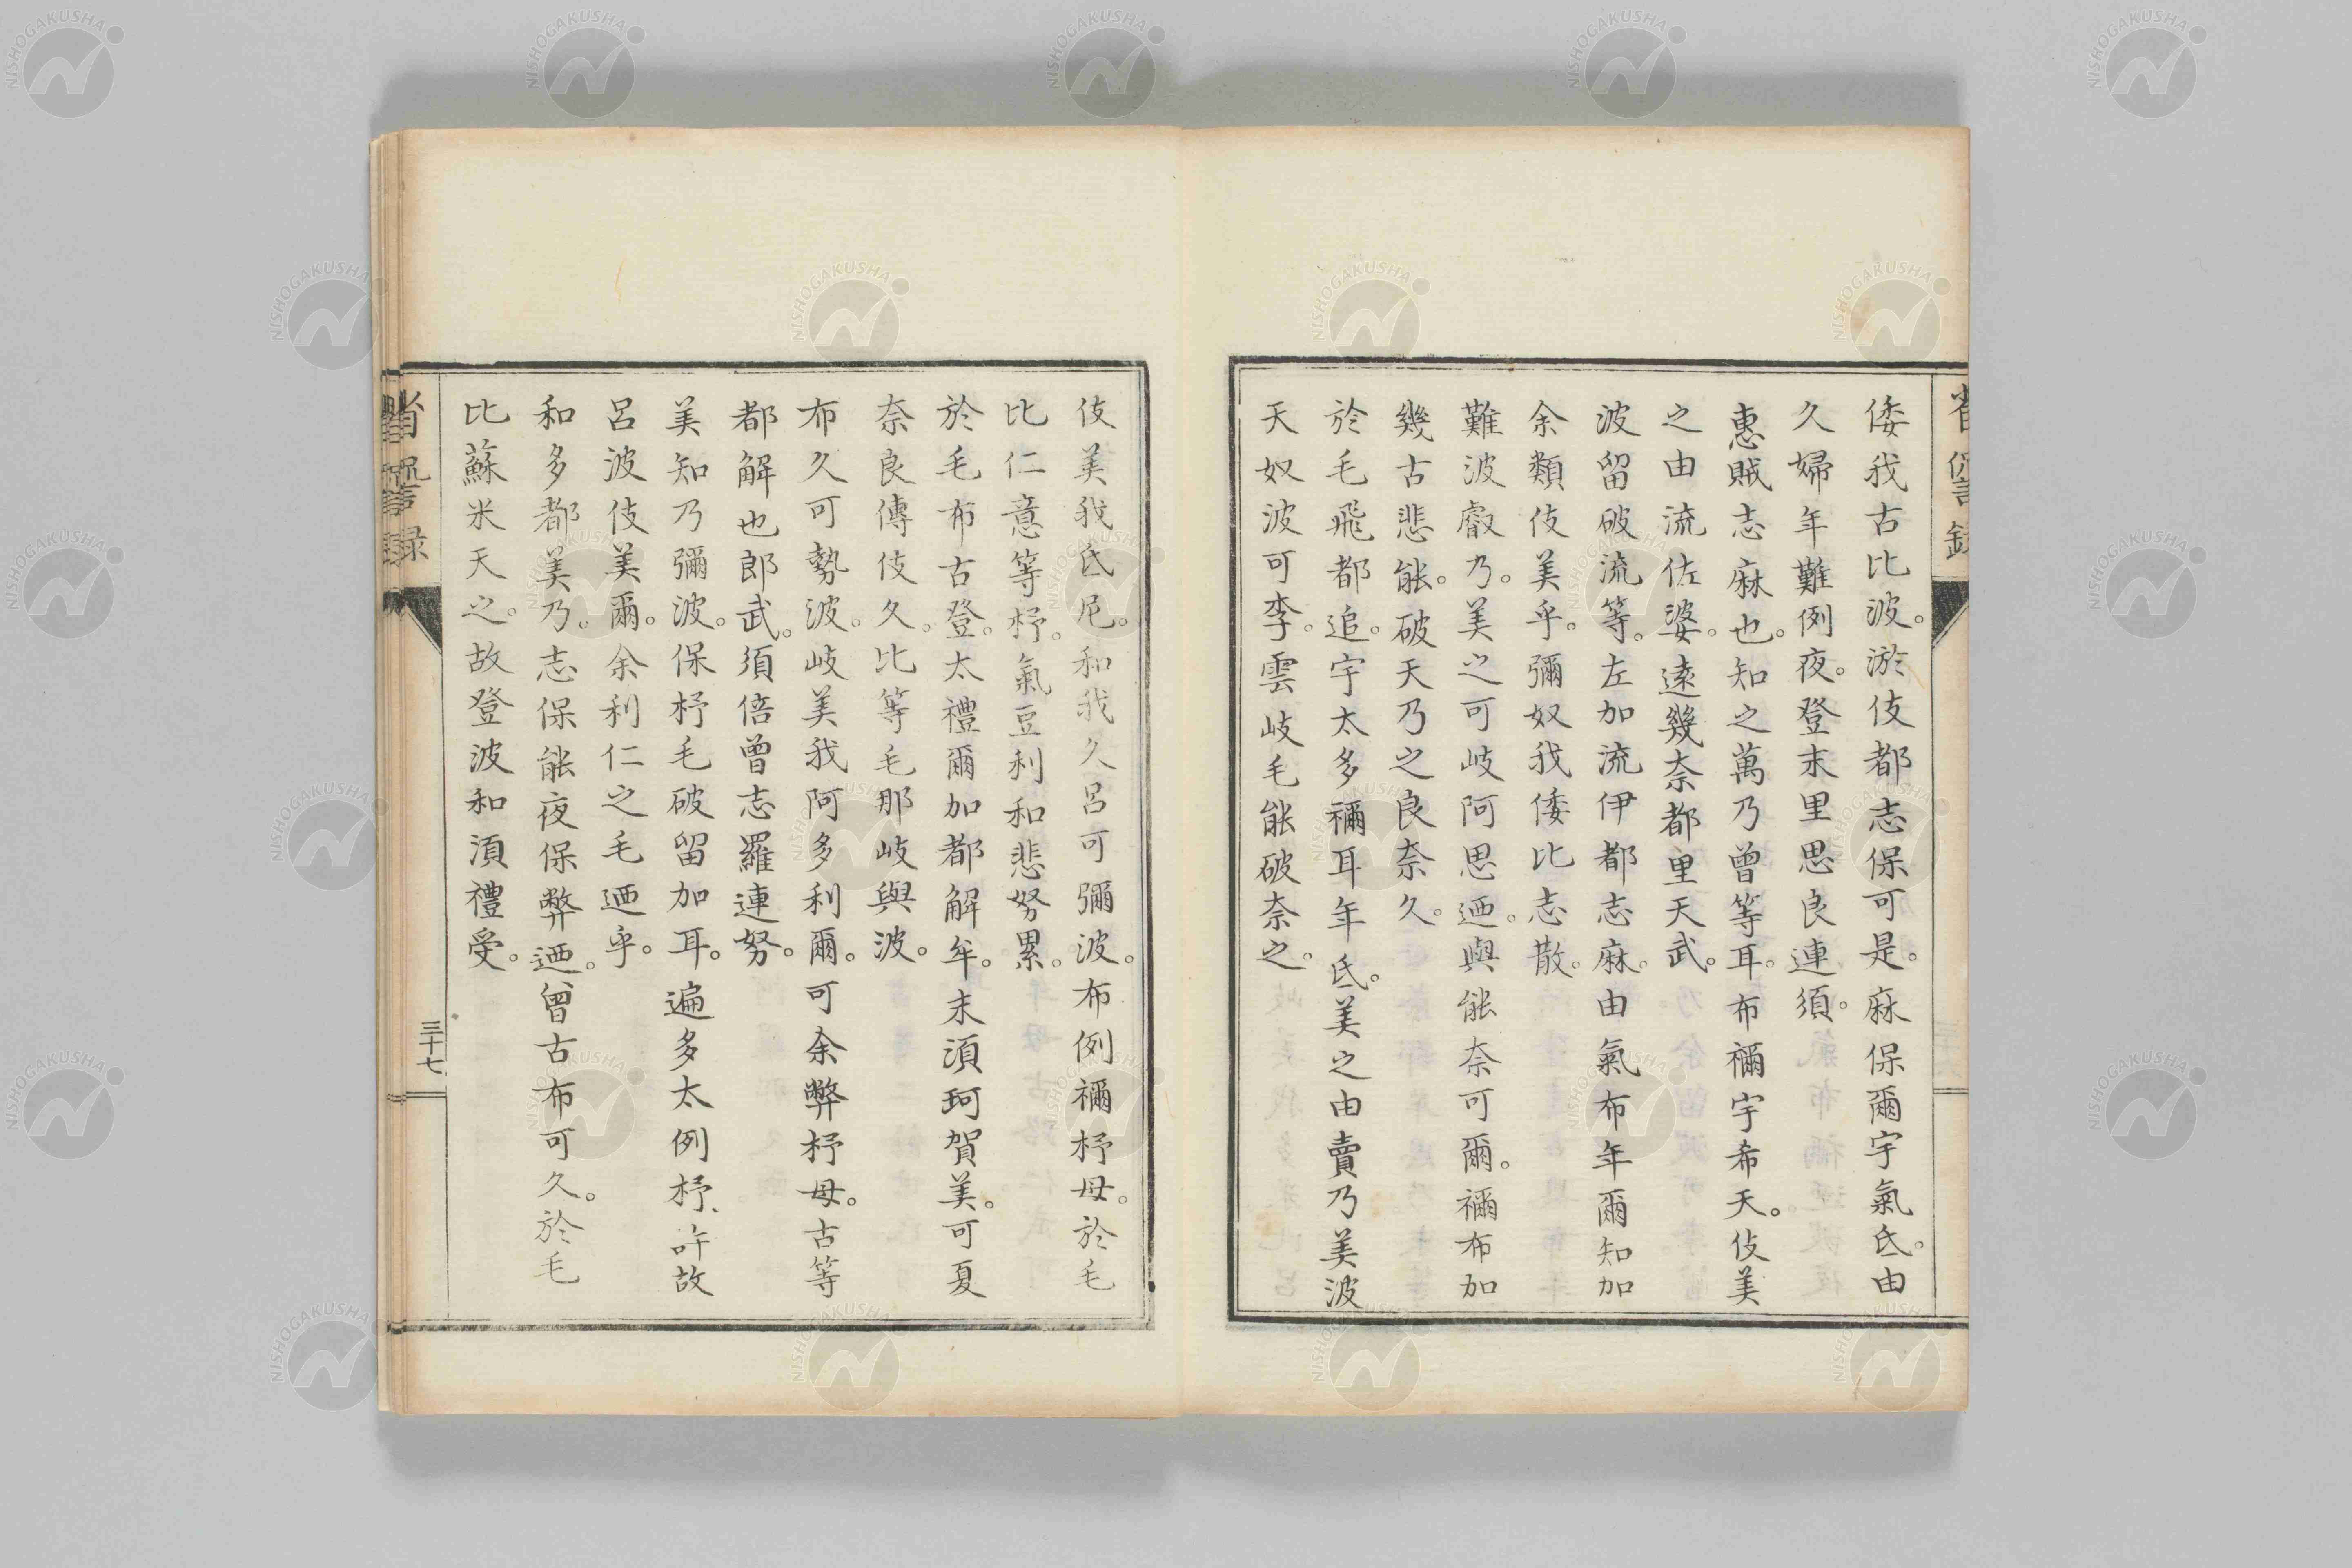 倭我古比波。淤伎都志保可是。麻保爾宇氣氐。由
久婦年難例夜。登末里思良連須。
惠賊志麻也。知之萬乃曾等耳。布禰宇希天。伎美
之由流佐婆。遠幾奈都里天武。
波留破流等。左加流伊都志麻。由氣布年爾知加
余類伎美乎。彌奴我倭比志散。
難波嚴乃。美之可岐阿思迺。與能奈可爾。禰布加
幾古悲能。破天乃之良奈久。
於毛飛都追。宇太多禰耳年氐。美之由賣乃美波
天奴波可李。雲岐毛能破奈之。
伎美我氐尼。和我久呂可彌波。布例禰杼母。於毛
比仁意等杼。氣豆利和悲努累。
於毛布古登。太禮爾加都解牟。末湏珂賀美。可夏
奈良傳伎久。比等毛那岐與波。
布久可勢波。岐美我阿多利爾。可余弊杼母。古等
都解也郎武。須倍曾志羅連努。
美知乃彌波。保杼毛破留加耳。遍多太例杼、許故
呂波伎美爾。余利仁之毛迺乎。
和多都美乃。志保能夜保弊迺。曾古布可久。於毛
比蘇米天之。故登波和湏禮受。
省諐録
三十七
NISHOGAKUSHA